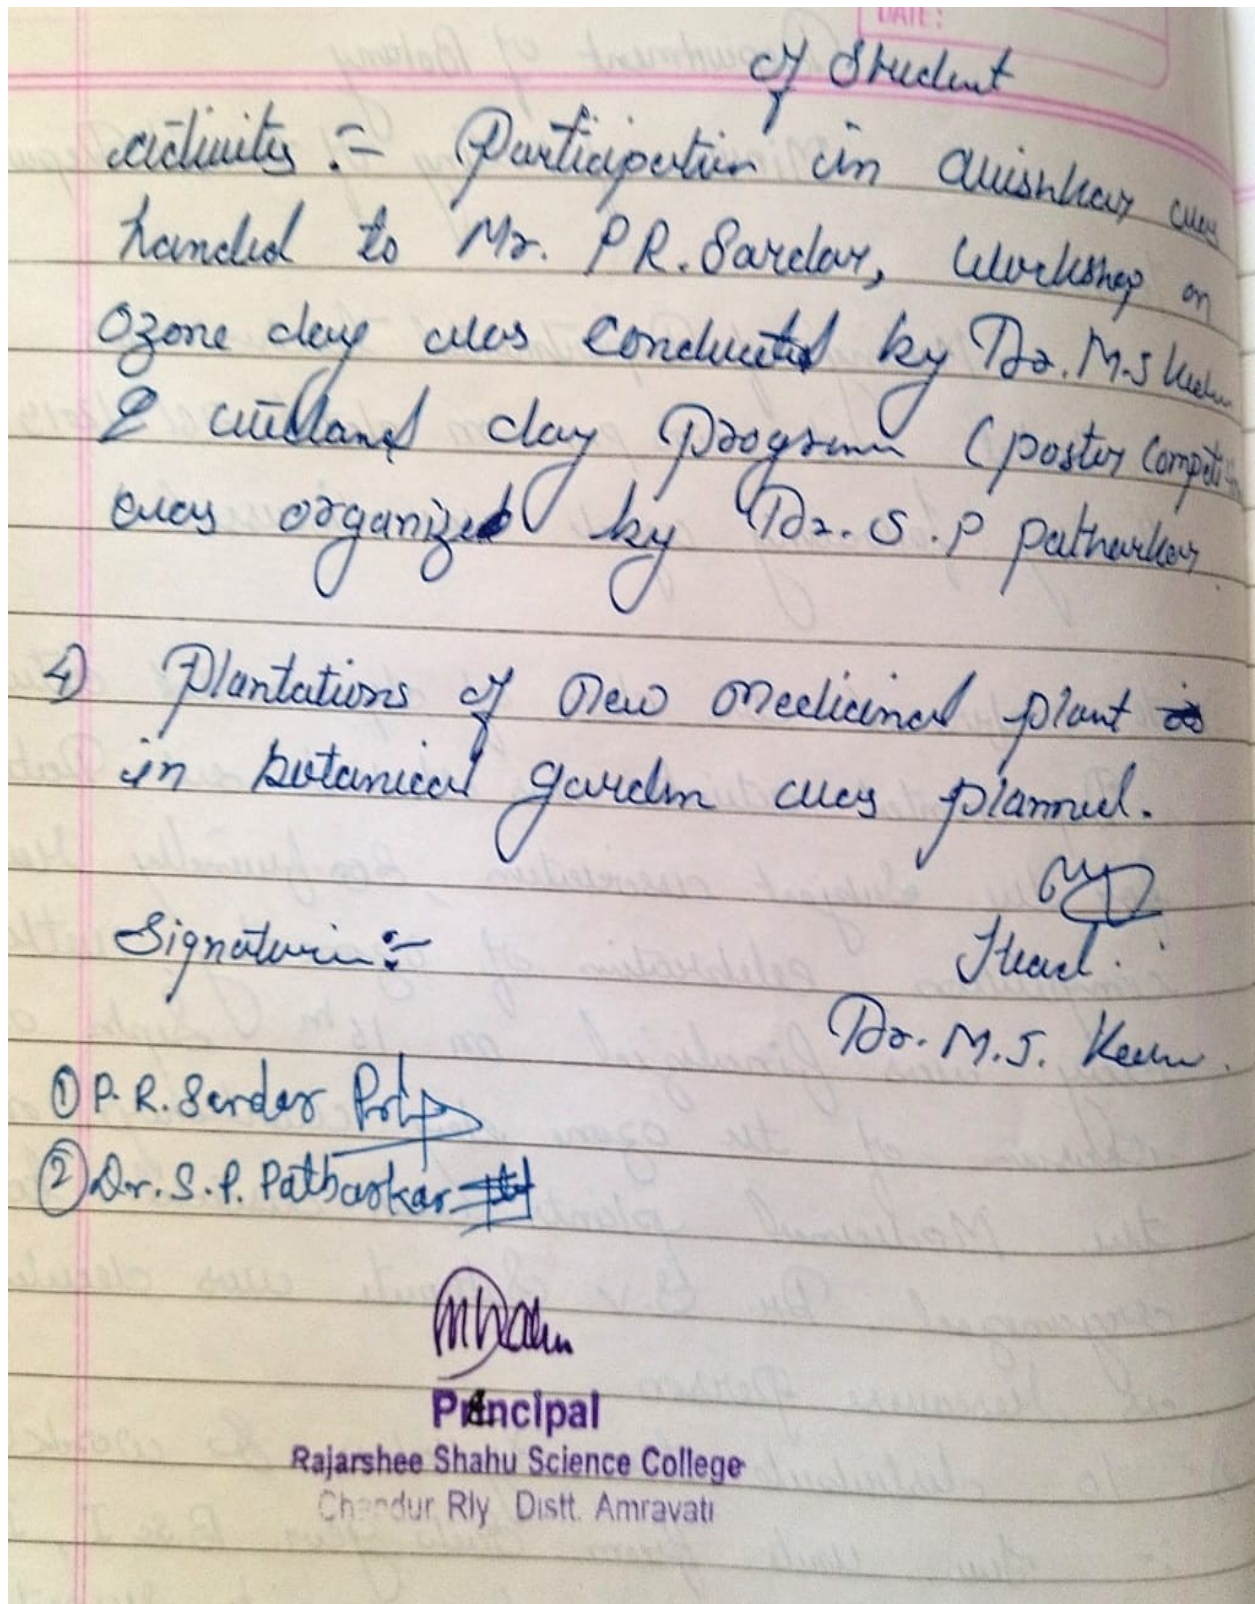 DATE:
of Student
activity :- Participation in Avishkar was
handed to Mr. P R. Sardar, Workshop on
Ozone day was conducted by Dr. M.S
& wetland day program (poster Competition
was organized by Dr. S. P Patharkar
4) Plantations of new medicinal plant
in botanical garden was planned.
Head.
Signature:-
Dr. M.S.
① P. R. Sardar
② Dr. S. P. Patharkar
Principal
Rajarshee Shahu Science College
Chandur Rly Distt. Amravati